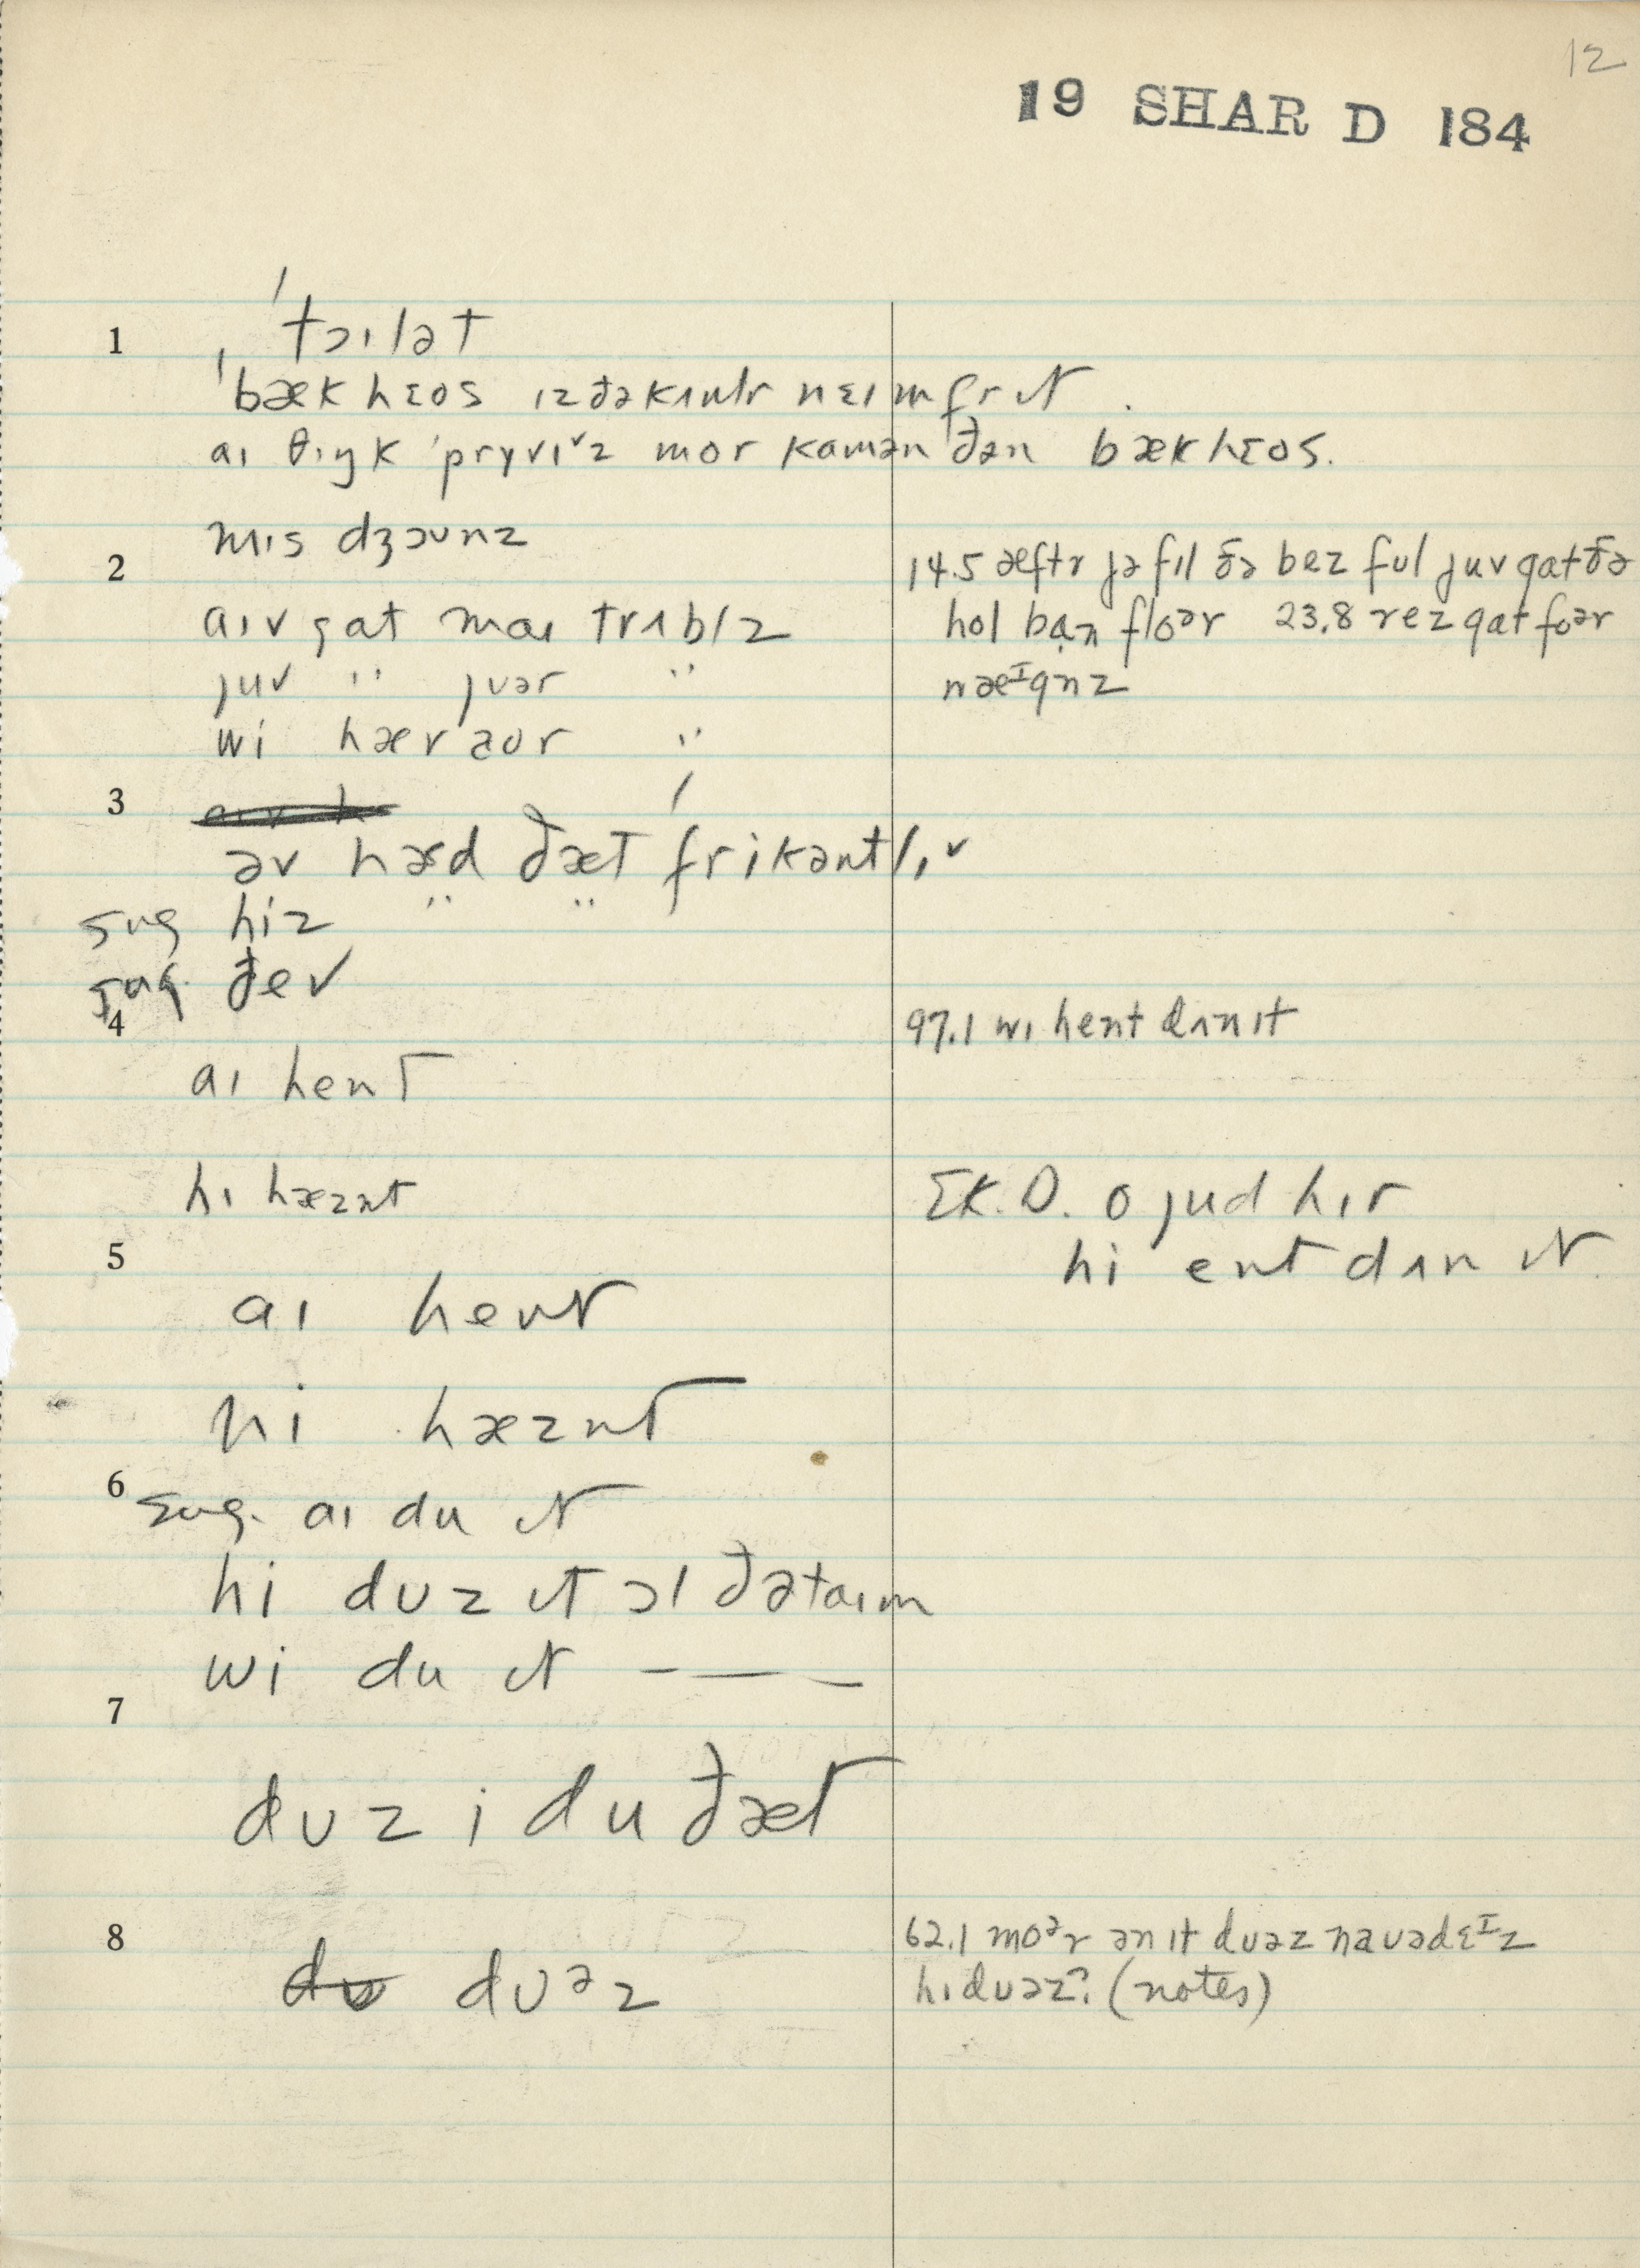 12
19 SHAR D 184
1 ˈtɔɪlət
ˈbækhɛos ɪz ðə kʌntr nɛɪm fr ɪt.
aɪ θɪŋk ˈprɪvɪˇz mor kamən ðən bækhɛos.
mɪs dʒɔunz
2
aɪv gat maɪ trʌblz
juv " juər "
wi hæv aʊr "
14.5 æftr jə fɪl ðə bez ful juv gat ðə
hol ban floᵊr 23.8 rez gat foər
næᴵgnz
3
əv hæd ðæt frikəntlɪˇ
sug hiz " "
sug. ðev
4
aɪ hent
hɪ hæznt
97.1 wɪ hent dʌn ɪt
ƐK. D. o jud hɪr
hi ent dʌn ɪt.
5
aɪ hent
hi hæznt
6
sug. aɪ du ɪt
hi dʊz ɪt ɔl ðə taɪm
wi du ɪt — — —
7
dʊz i du ðæt
8
dʊ dʊᵊz
62.1 moᵊr ən ɪt dʊəz naʊədɛᴵz
hɪ dʊəz? (notes)